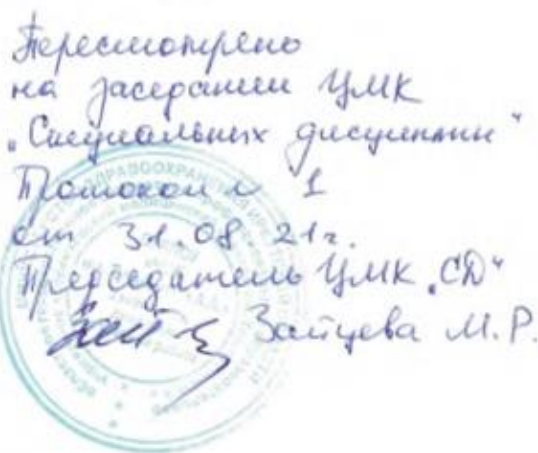 Пересмотрено
на заседании ЦМК
„Специальных дисциплин"
Протокол № 1
от 31.08 21г.
Председатель ЦМК „СД"
Зайцева М.Р.